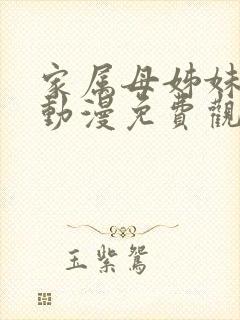 家属母姊妹
動漫免費觀
玉紫鴛